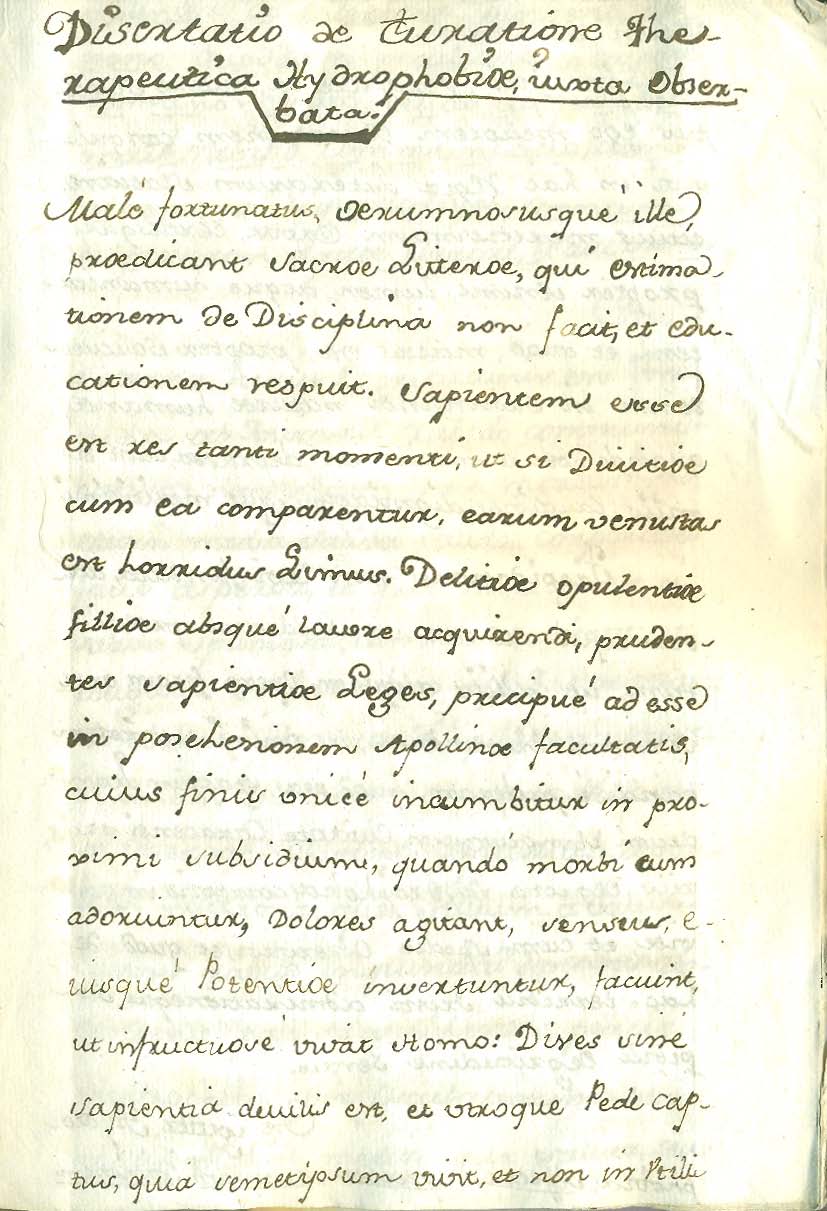 Disertatio de Curatione The-
rapeutica Hydrophobiæ, iuxta Obser-
bata.
Malé fortunatus, ærumnosusqué ille,
prædicant Sacræ Litteræ, qui estima-
tionem de Disciplina non facit, et edu-
cationem respuit. Sapientem esse
est res tanti momenti, ut si Divitiæ
cum ea comparentur, earum venustas
est horridus Limus. Delitiæ opulentiæ
filliæ absqué lavore acquirendi, pruden-
tes sapientiæ Leges, precipué ad esse
in Apollinæ facultatis,
cuius finis unicé incumbitur in pro-
ximi subsidium, quandó morbi eum
adoriuntur, Dolores agitant, sensus, e-
iusqué Potentiæ invertuntur, faciunt,
ut infructuosé vivat Homo: Dives siné
sapientia devilis est, et utroque Pede cap-
tus, quia semetipsum vivit, et non in